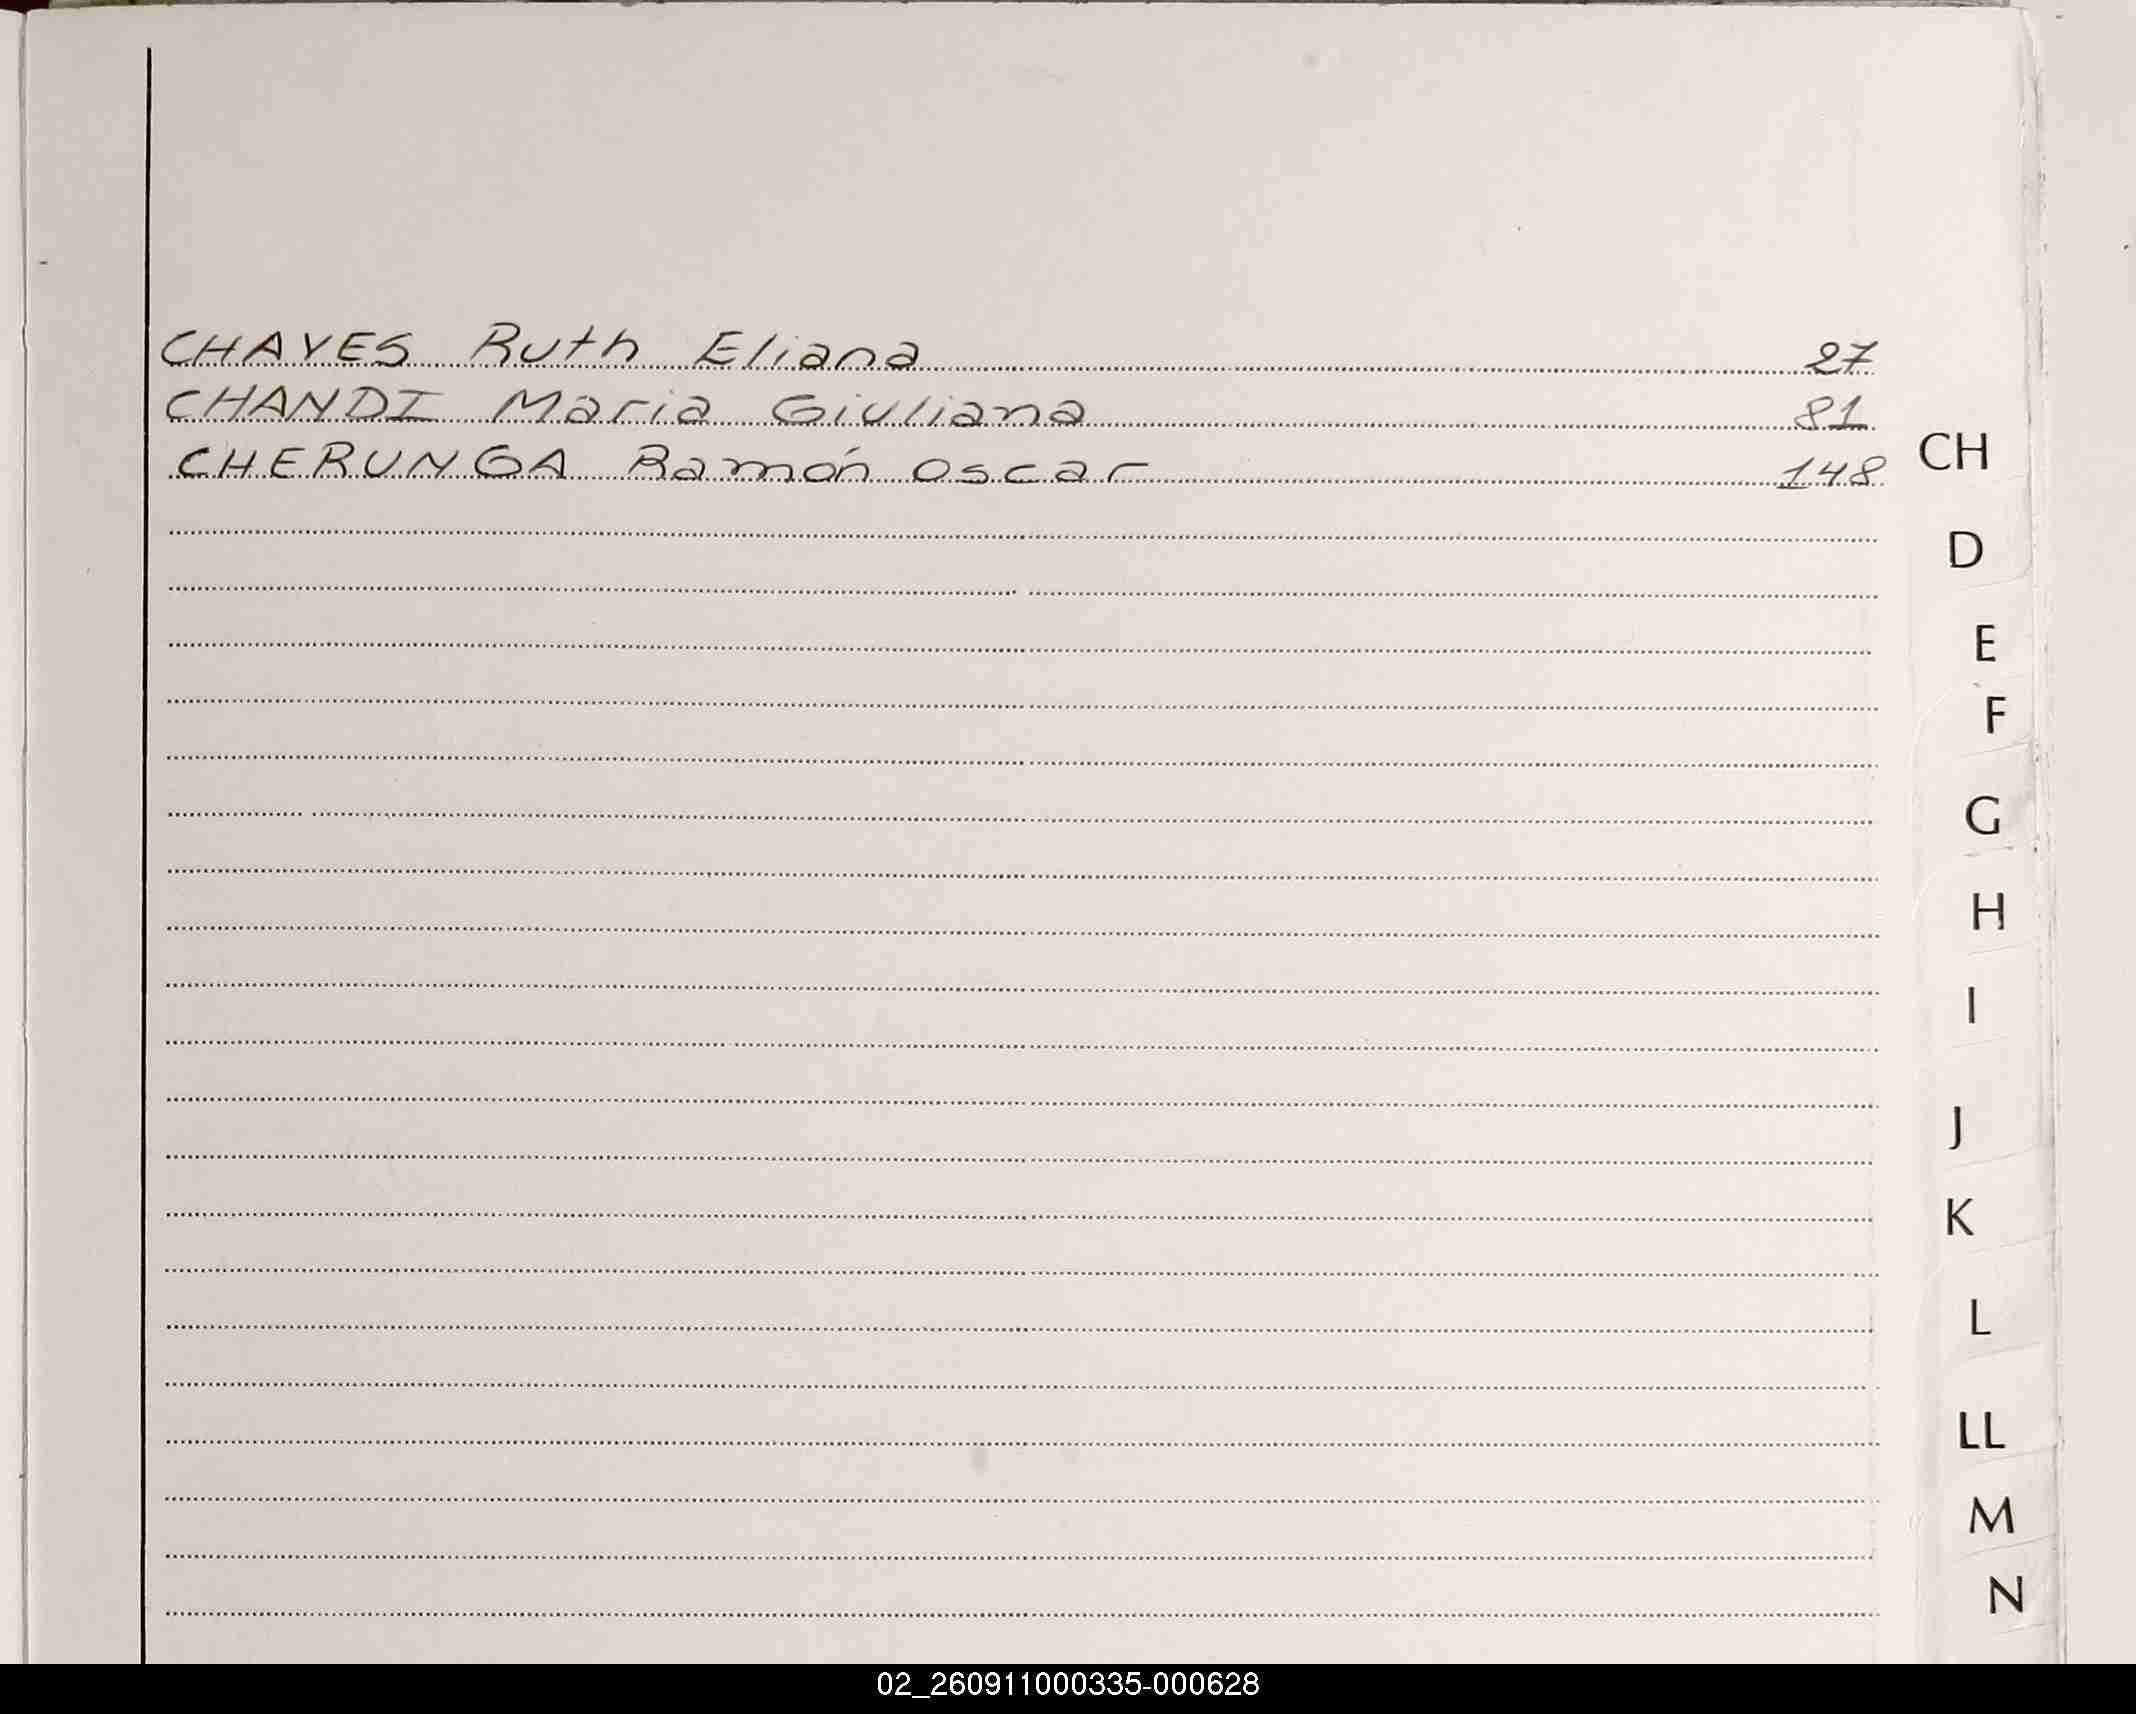 CHAVES Ruth Eliana 27
CHANDI Maria Giuliana 81
CHERUNGA Ramón Oscar 148
CH
D
E
F
G
H
I
J
K
L
LL
M
N
02_260911000335-000628